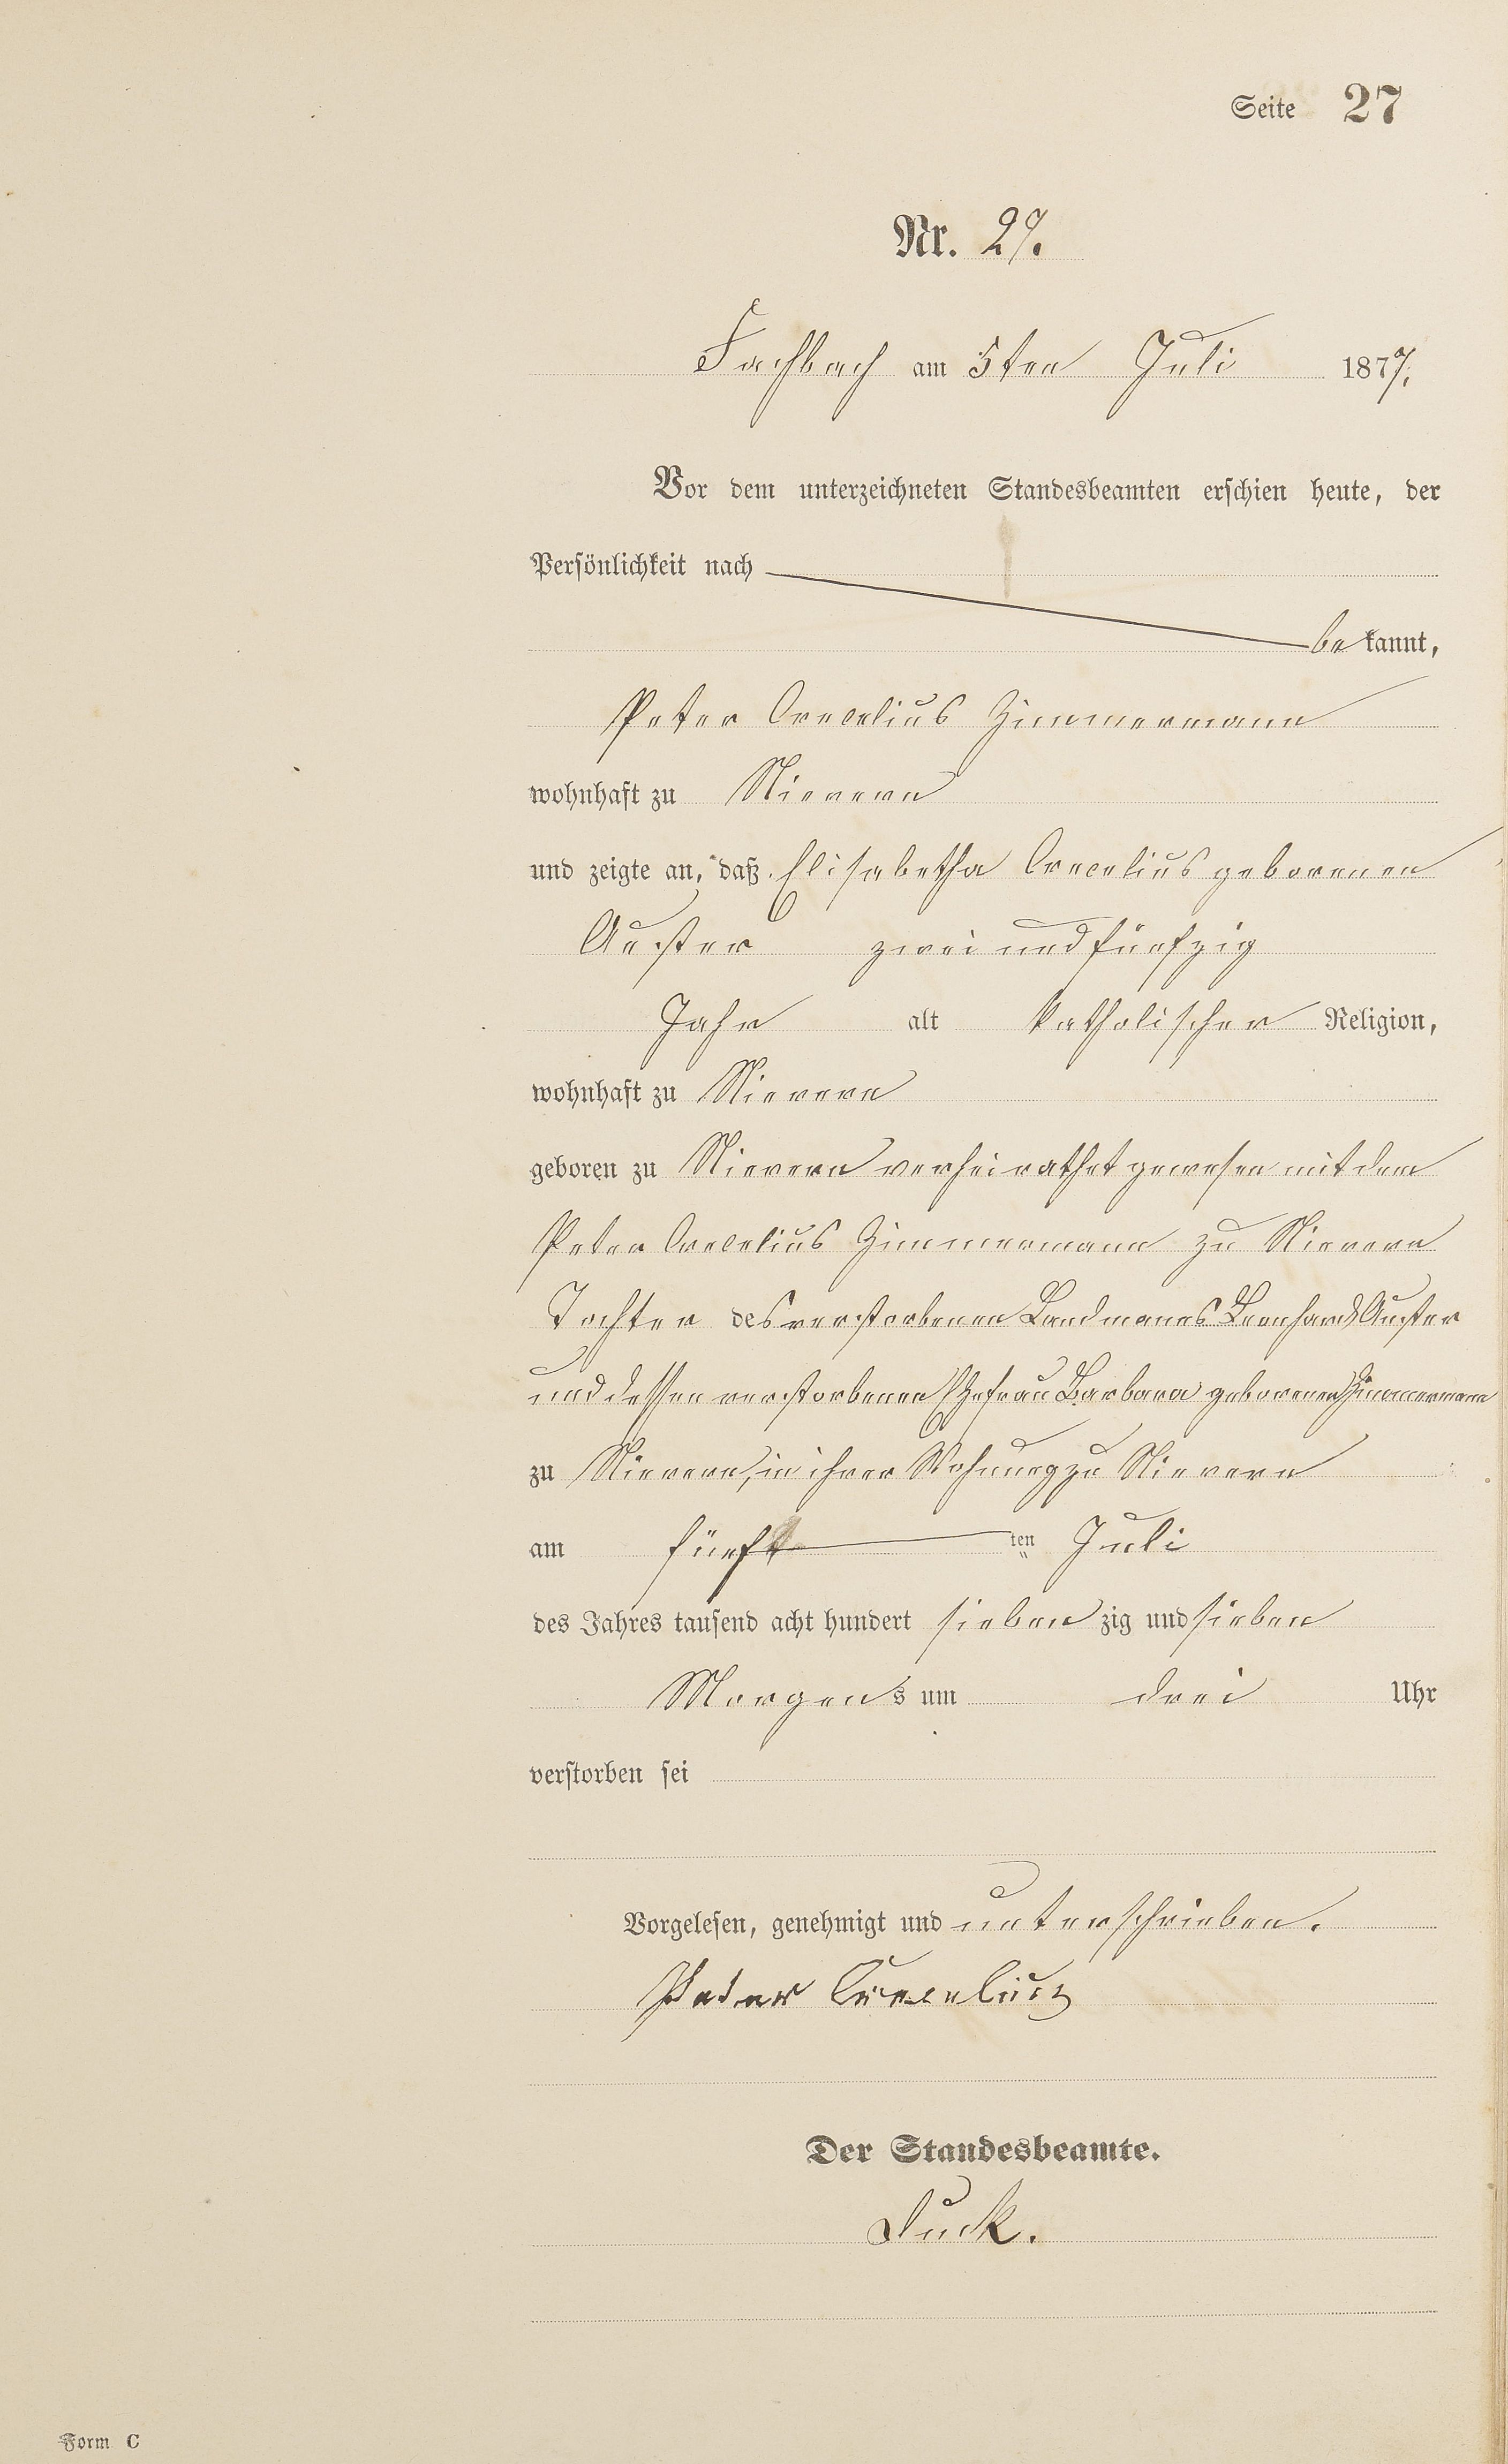 Seite 27
Nr. 27.
Fachbach am 5ten Juli 1877.
Vor dem unterzeichneten Standesbeamten erschien heute, der
Persönlichkeit nach
bekannt,
Peter Crecelius Zimmermann
wohnhaft zu Nievern
und zeigte an, daß Elisabetha Crecelius geborenen
Auster zwei und fünfzig
Jahr alt katholischer Religion,
wohnhaft zu Nievern
geboren zu Nievern verheirathet gewesen mit dem
Peter Crecelius Zimmermann zu Nievern
Tochter des verstorbenen Landmanns Leonhard Auster
und dessen verstorbenen Ehefrau Barbara geborenen Zimmermann
zu Nievern, in ihrer Wohnung zu Nievern
am fünf ten Juli
des Jahres tausend acht hundert sieben zig und sieben
Morgens um drei Uhr
verstorben sei
Vorgelesen, genehmigt und unterschrieben.
Peter Crecelius
Der Standesbeamte.
Duck.
Form C